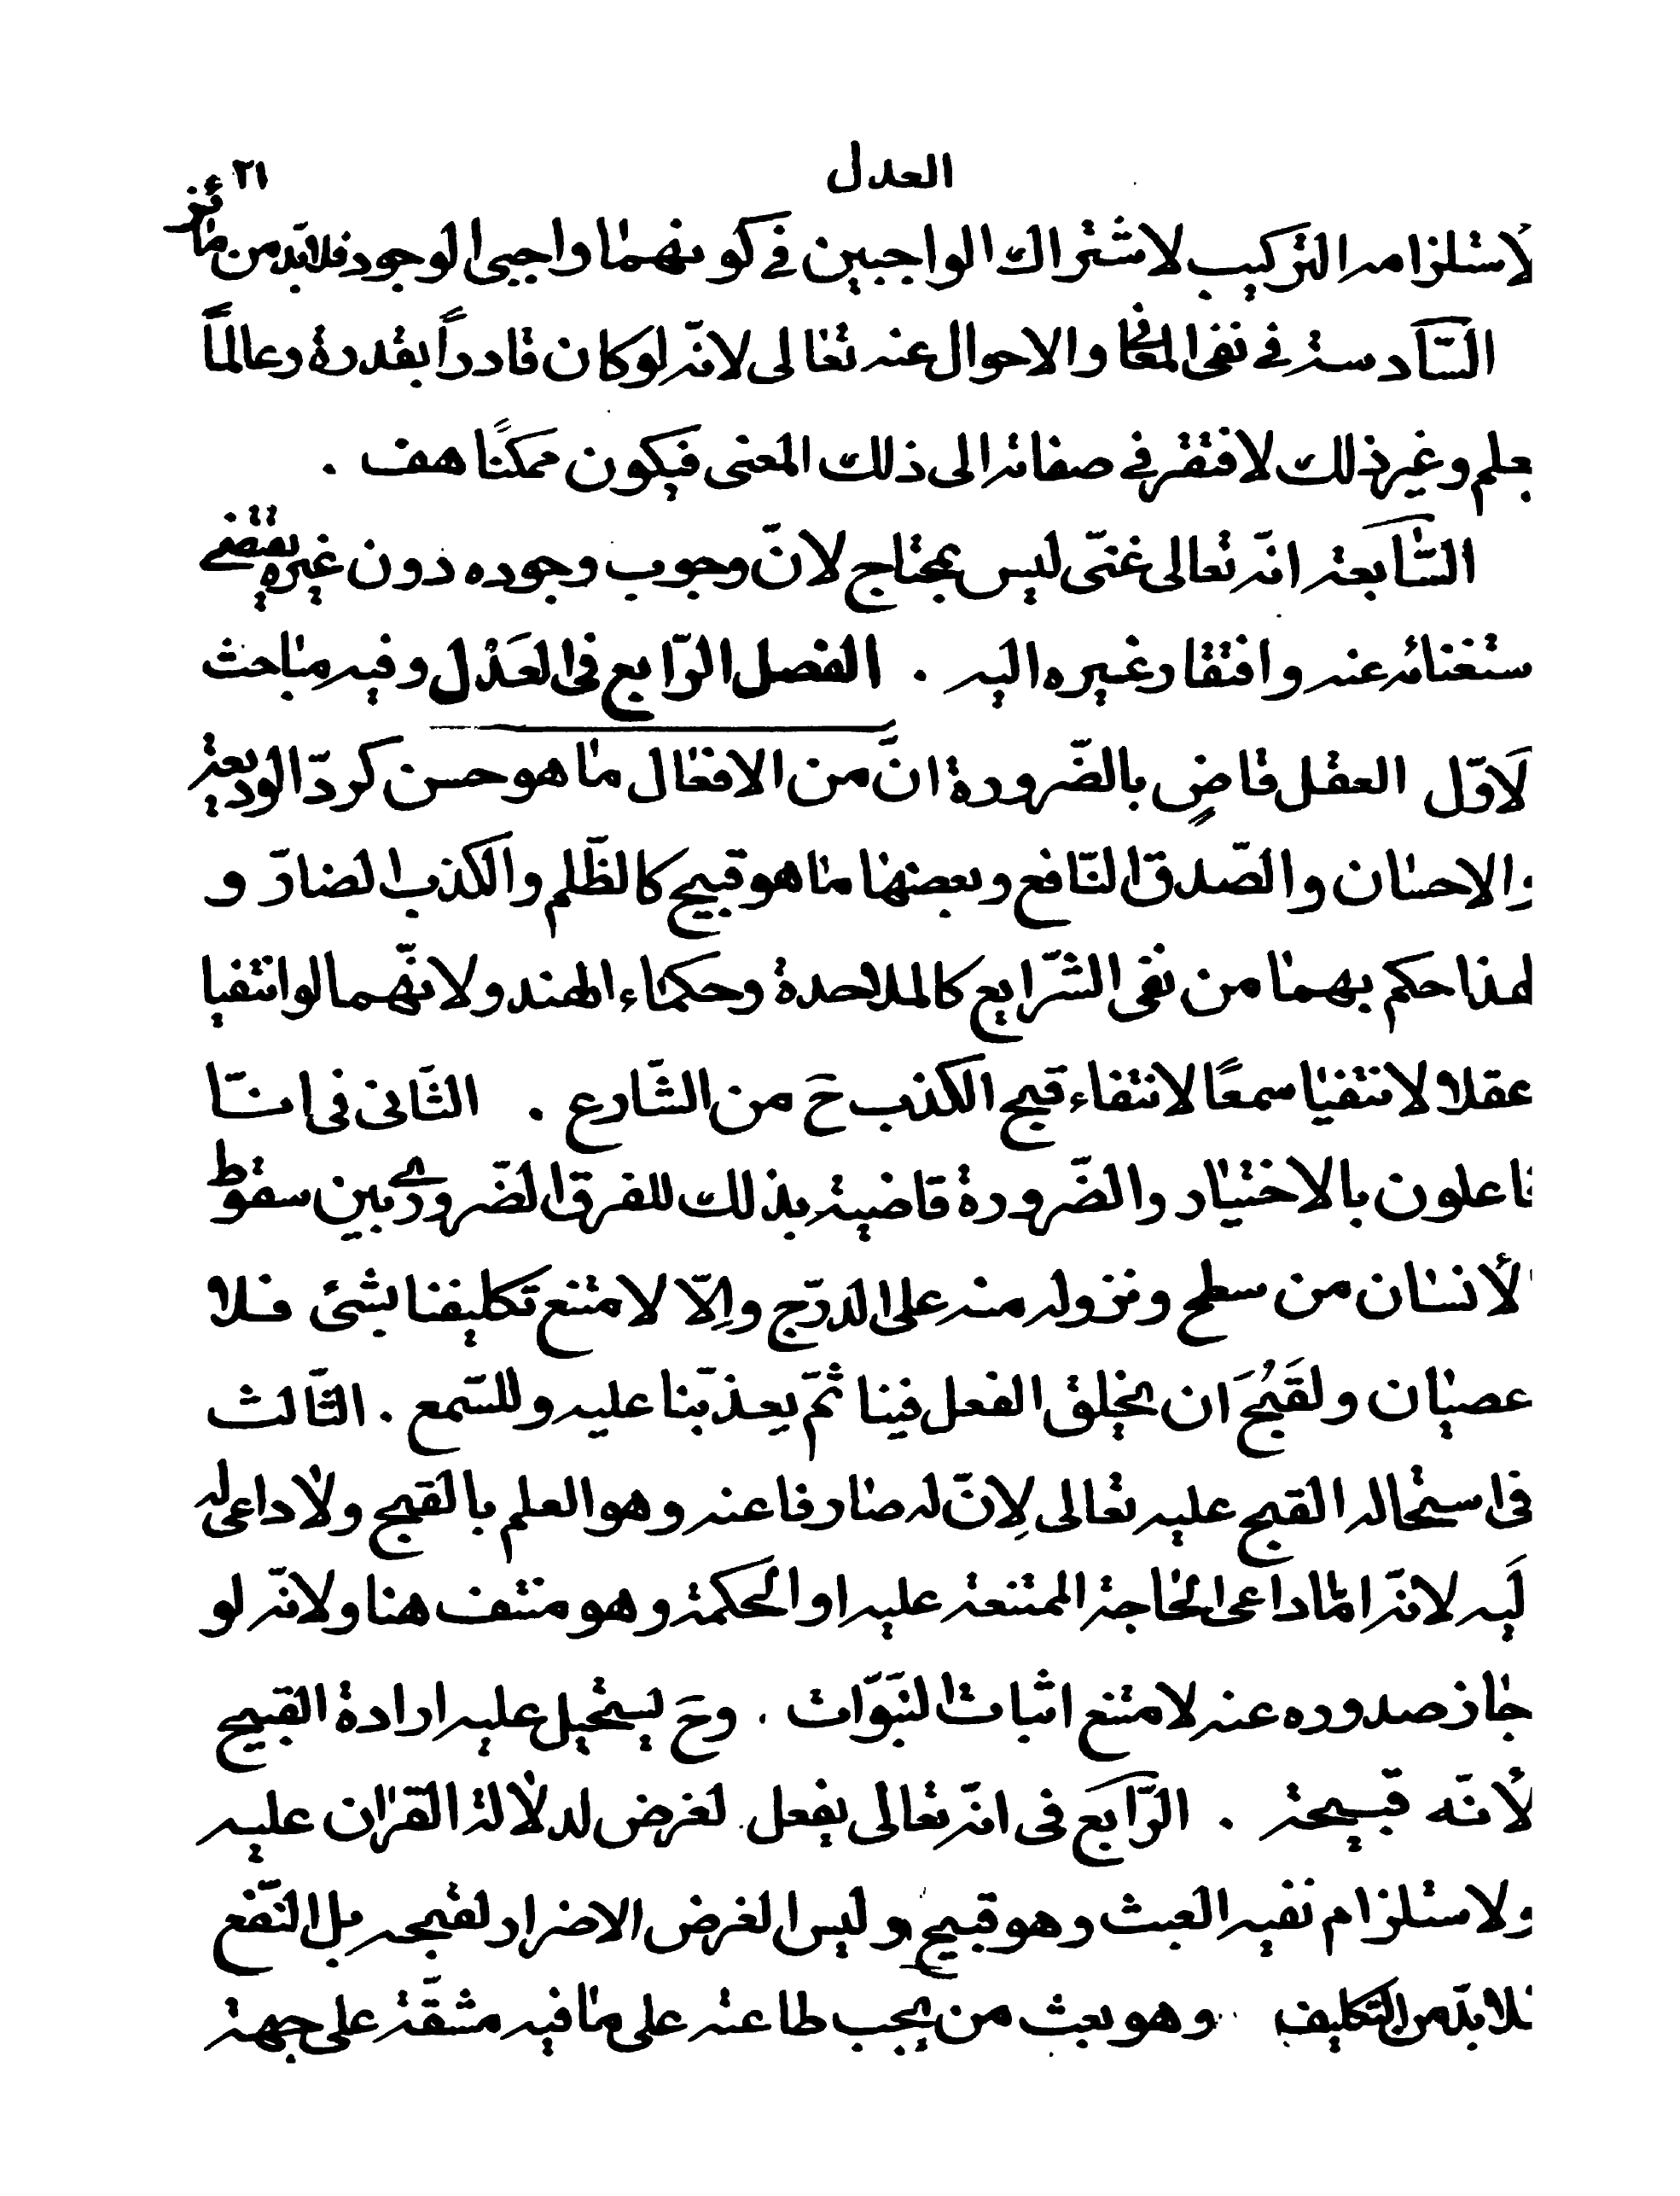 العدل ٢١
لاستلزامه التركيب لاشتراك الواجبين في كونهما واجبى الوجود فلابد من مائز
السّادسة في نفى المعانى والاحوال عنه تعالى لانّه لو كان قادراً بقدرة وعالماً
بعلم وغير ذلك لافتقر في صفاته الى ذلك المعنى فيكون ممكنًا هف .
السّابعة انّه تعالى غنىّ ليس بمحتاج لانّ وجوب وجوده دون غيره يقتضى
ستغنائه عنه وافتقار غيره اليه . الفصل الرّابع فى العَدْل وفيه مباحث
لَاوّل العقل قاضٍ بالضّرورة انَّ من الافعال ما هو حسن كردّ الوديعة
والاحسان والصّدق النّافع وبعضها ما هو قبيح كالظّلم والكذب الضارّ و
لهذا حكم بهما من نفى الشّرايع كالملاحدة وحكماء الهند ولانّهما لو انتفيا
عقلا لانتفيا سمعًا لانتفاء قبح الكذب حَ من الشّارع . الثّانى فى انّا
فاعلون بالاختيار والضّرورة قاضية بذلك للفرق الضّرورى بين سقوط
لأنسان من سطح ونزوله منه على الدرّج وإلّا لامتنع تكليفنا بشئ فلا
عصيان ولقَبُحَ ان يخلق الفعل فينا ثمّ يعذّبنا عليه وللسّمع . الثّالث
فى استحالة القبح عليه تعالى لِانّ له صارفا عنه وهو العلم بالقبح ولا داعى له
لَيه لانّه امّا داعى الحاجة الممتنعة عليه او الحكمة وهو منتف هنا ولانّه لو
جاز صدوره عنه لامتنع اثبات النبَوّات . وحَ يستحيل عليه ارادة القبيح
لأنّه قبيحة . الرّابع فى انّه تعالى يفعل لغرض لدلالة القران عليه
ولاستلزام نفيه العبث وهو قبيح وليس الغرض الاضرار لقبحه بل النّفع
فلابدّ من التكليف وهو بعث من يجب طاعته على ما فيه مشقّة على جهة